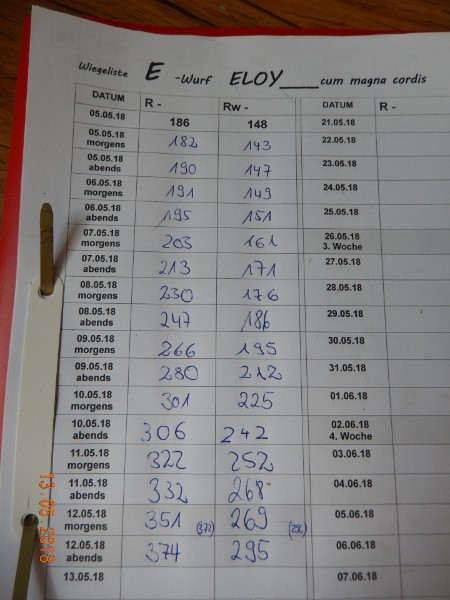 Wiegeliste E -Wurf ELOY____cum magna cordis
DATUM R - Rw - DATUM R -
05.05.18 186 148 21.05.18
05.05.18 morgens 182 143 22.05.18
05.05.18 abends 190 147 23.05.18
06.05.18 morgens 191 149 24.05.18
06.05.18 abends 195 151 25.05.18
07.05.18 morgens 203 161 26.05.18 3. Woche
07.05.18 abends 213 171 27.05.18
08.05.18 morgens 230 176 28.05.18
08.05.18 abends 247 186 29.05.18
09.05.18 morgens 266 195 30.05.18
09.05.18 abends 280 212 31.05.18
10.05.18 morgens 301 225 01.06.18
10.05.18 abends 306 242 02.06.18 4. Woche
11.05.18 morgens 322 252 03.06.18
11.05.18 abends 332 268 04.06.18
12.05.18 morgens 351 (372) 269 05.06.18
12.05.18 abends 374 295 06.06.18
13.05.18 07.06.18
13.05.2018